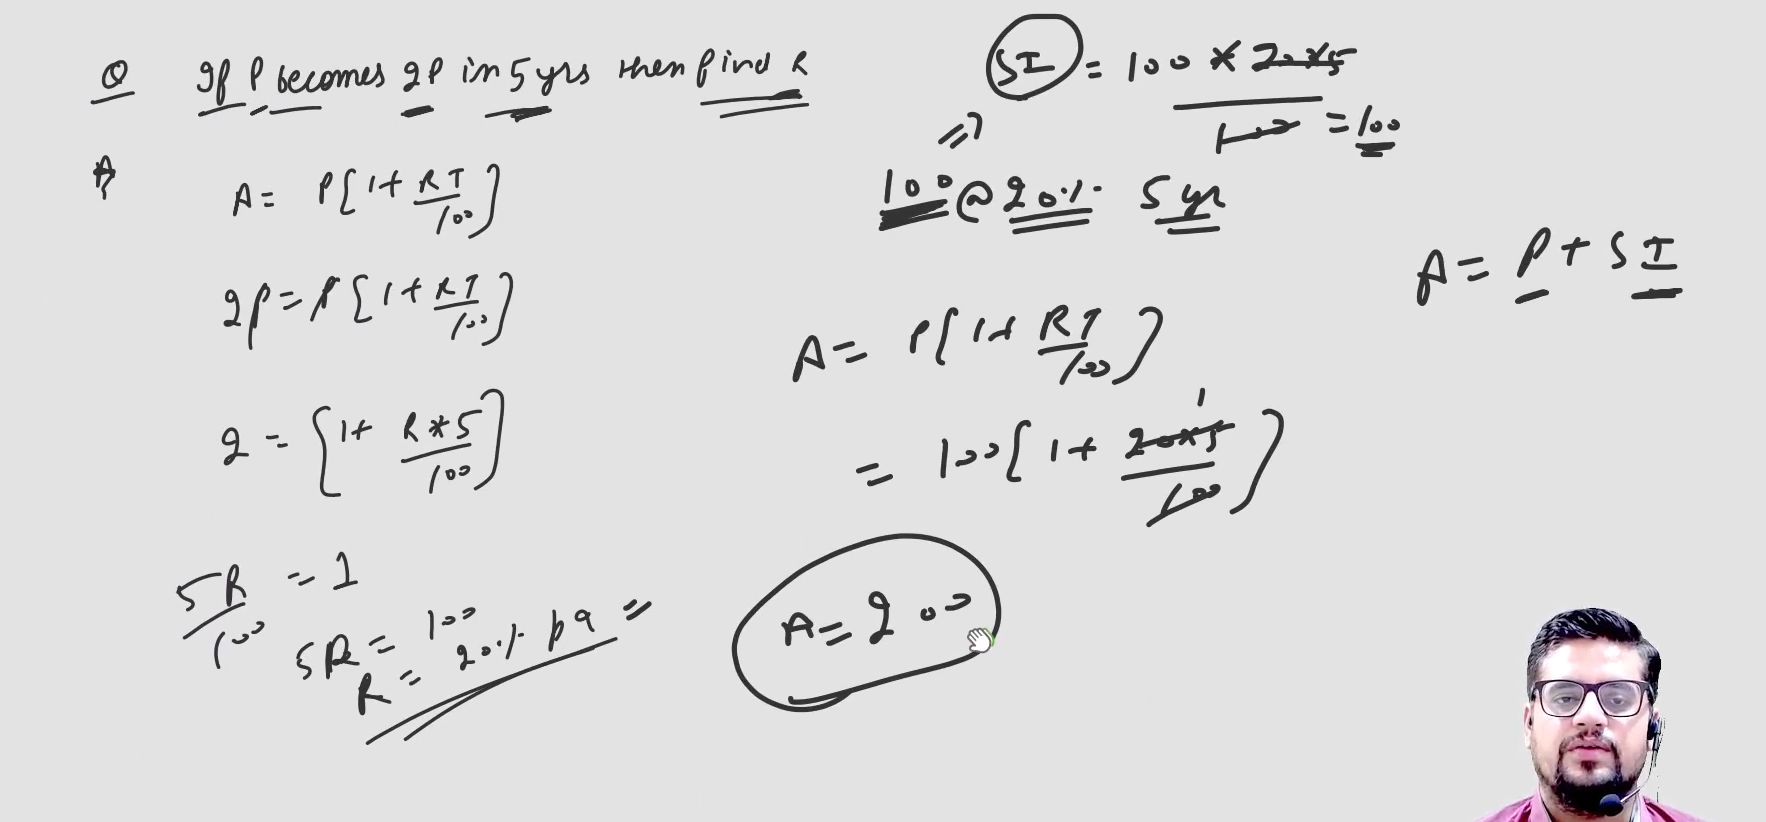 Q If P becomes 2P in 5 yrs then find R
A
A = P[1+ RT/100]
2P = P[1+ RT/100]
2 = [1+ R*5/100]
5R/100 = 1
5R = 100
R = 20% pa =
SI = 100 * 20*5/100 = 100
=>
100 @ 20% 5 yr
A = P + SI
A = P[1+ RT/100]
= 100[1+ 20*5/100]
1
A = 200